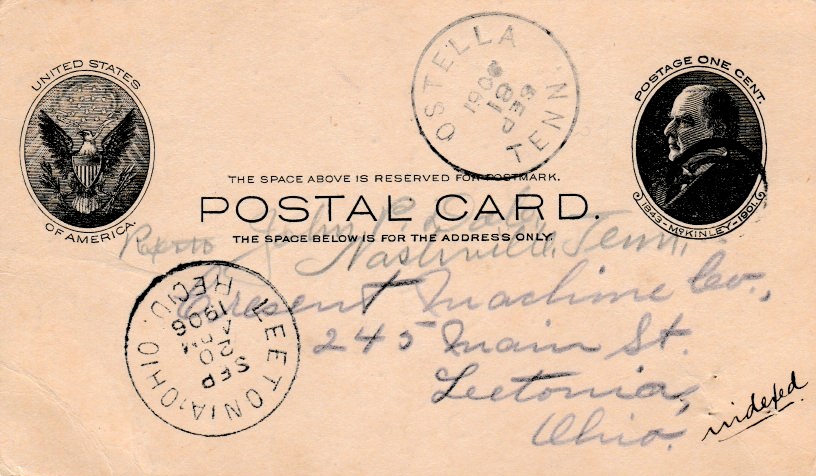 UNITED STATES
OF AMERICA.
OSTELLA
TENN
SEP
18
1906
POSTAGE ONE CENT.
1843-McKINLEY-1901.
THE SPACE ABOVE IS RESERVED FOR POSTMARK.
POSTAL CARD.
THE SPACE BELOW IS FOR THE ADDRESS ONLY.
John
Nashville, Tenn.
Cresent Machine Co.,
245 Main St.
Leetonia,
Ohio.
LEETONIA, OHIO
REC'D.
SEP
20
1906
indexed